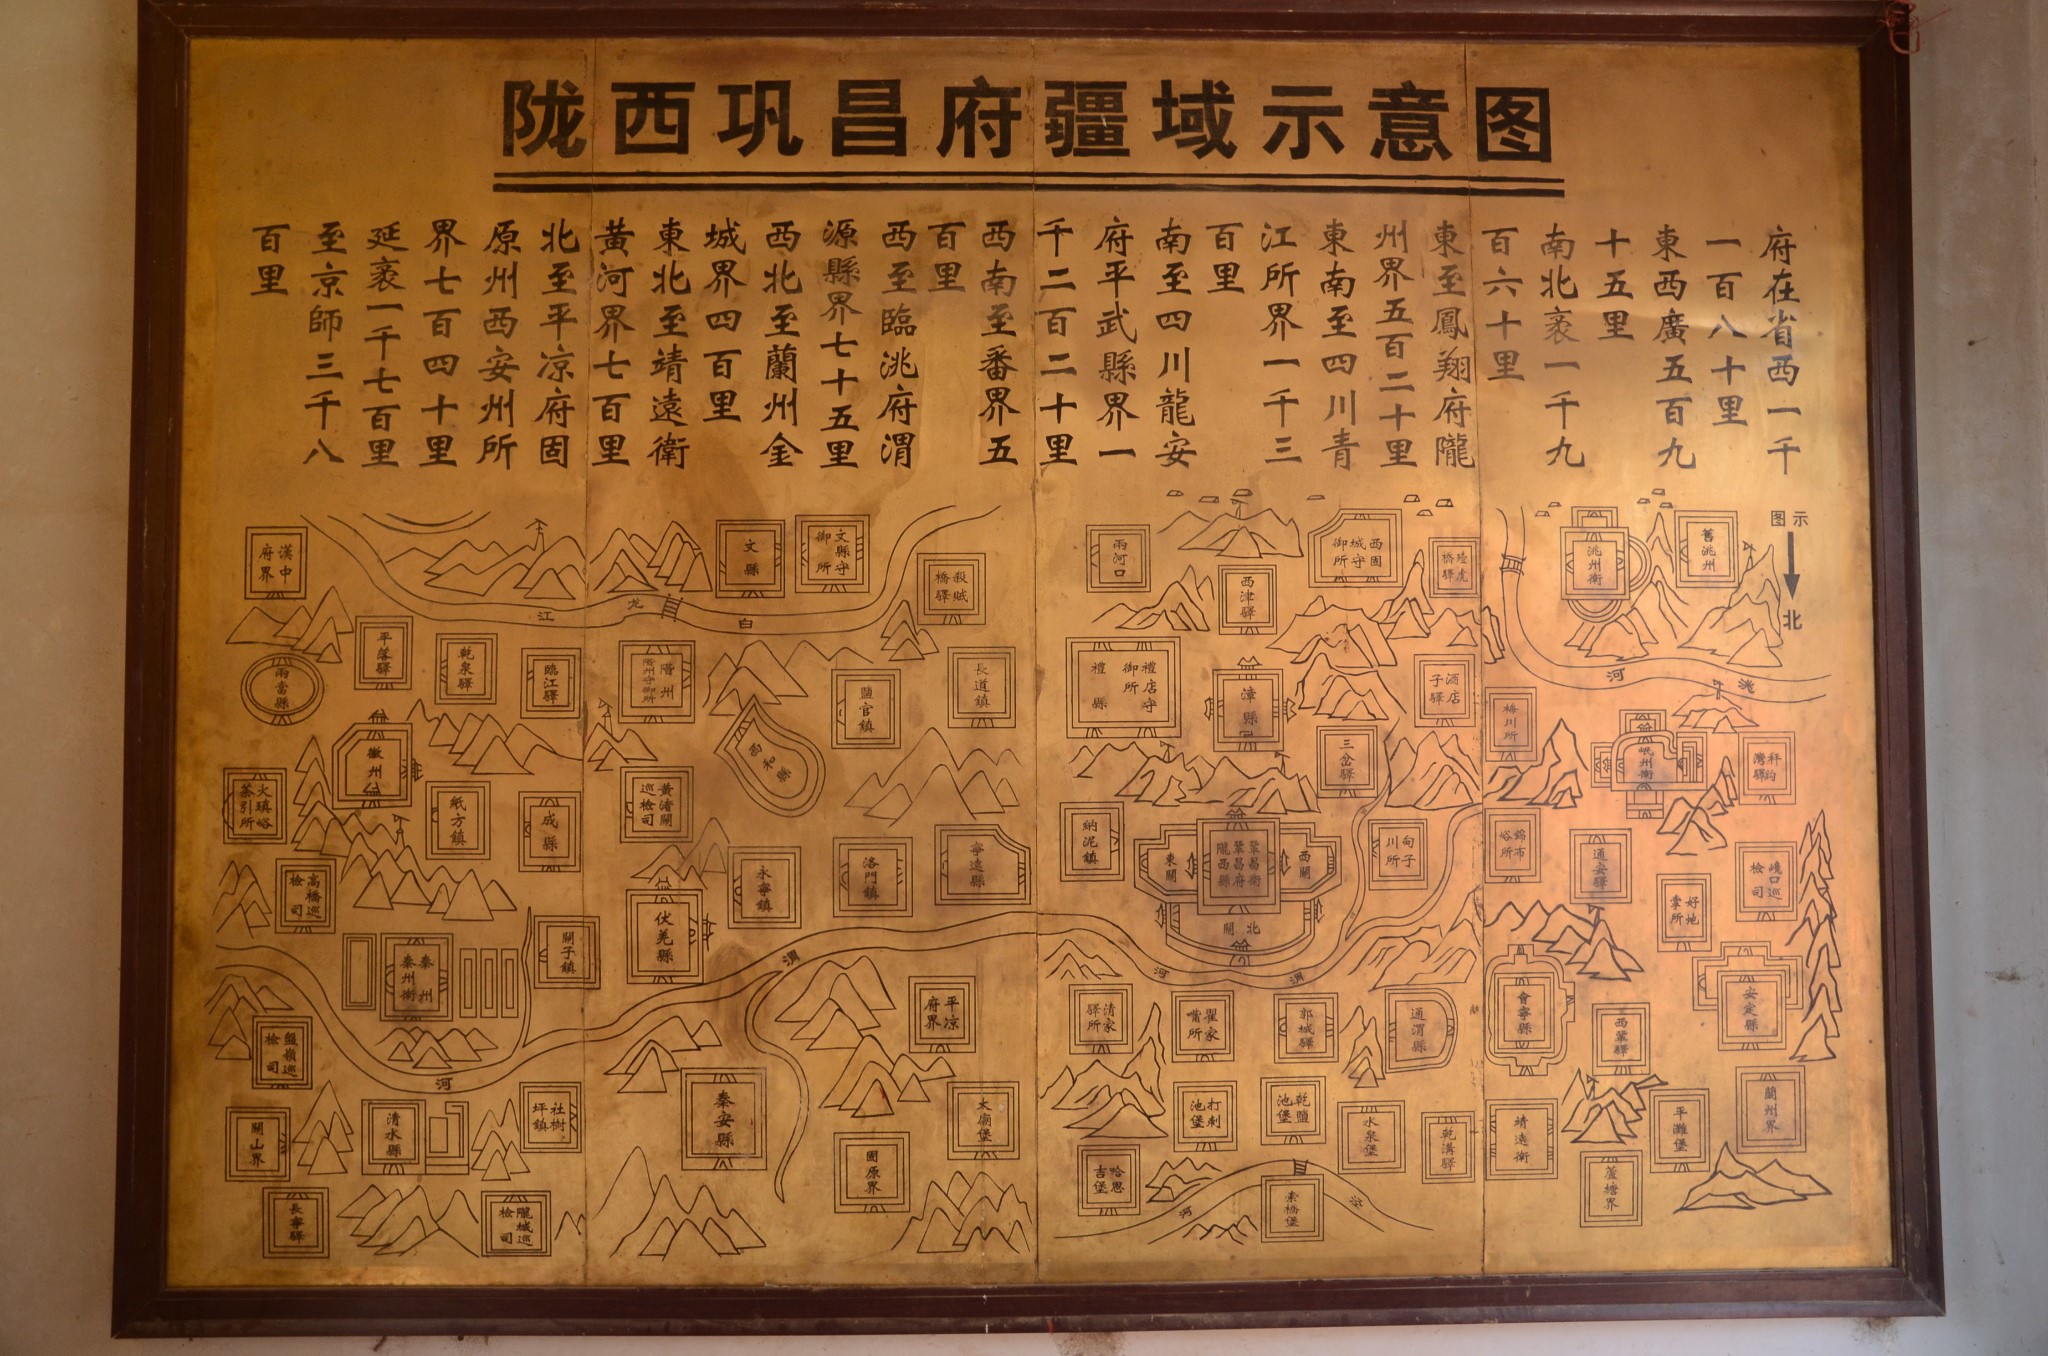 陇西巩昌府疆域示意图
府在省西一千
一百八十里
東西廣五百九
十五里
南北袤一千九
百六十里
東至鳳翔府隴
州界五百二十里
東南至四川青
江所界一千三
百里
南至四川龍安
府平武縣界一
千二百二十里
西南至番界五
百里
西至臨洮府渭
源縣界七十五里
西北至蘭州金
城界四百里
東北至靖遠衛
黃河界七百里
北至平凉府固
原州西安州所
界七百四十里
延袤一千七百里
至京師三千八
百里
图示
北
舊洮州
洮州衛
洮河
岷州衛
梅川所
酒店子驛
西固城守御所
西津驛
兩河口
禮店守御所
禮縣
漳縣
三岔驛
納泥鎮
東關
鞏昌衛
鞏昌府
隴西縣
西關
北關
通安驛
好地掌所
安定縣
會寧縣
西鞏驛
平灘堡
蘭州界
蘆塘界
靖遠衛
乾溝驛
水泉堡
乾鹽池堡
打剌池堡
哈思吉堡
索橋堡
河
通渭縣
郭城驛
瞿家嘴所
清家驛所
渭河
殺賊橋驛
文縣守御所
文縣
白龙江
漢中府界
平落驛
乾泉驛
臨江驛
階州
階州守御所
鹽官鎮
長道鎮
西和縣
兩當縣
徽州
火瓚峪茶引所
紙方鎮
成縣
黃渚關巡檢司
高橋巡檢司
永寧鎮
洛門鎮
寧遠縣
伏羌縣
關子鎮
秦州
秦州衛
渭河
平凉府界
盤嶺巡檢司
清水縣
社樹坪鎮
秦安縣
太廟堡
固原界
關山界
長寧驛
隴城巡檢司